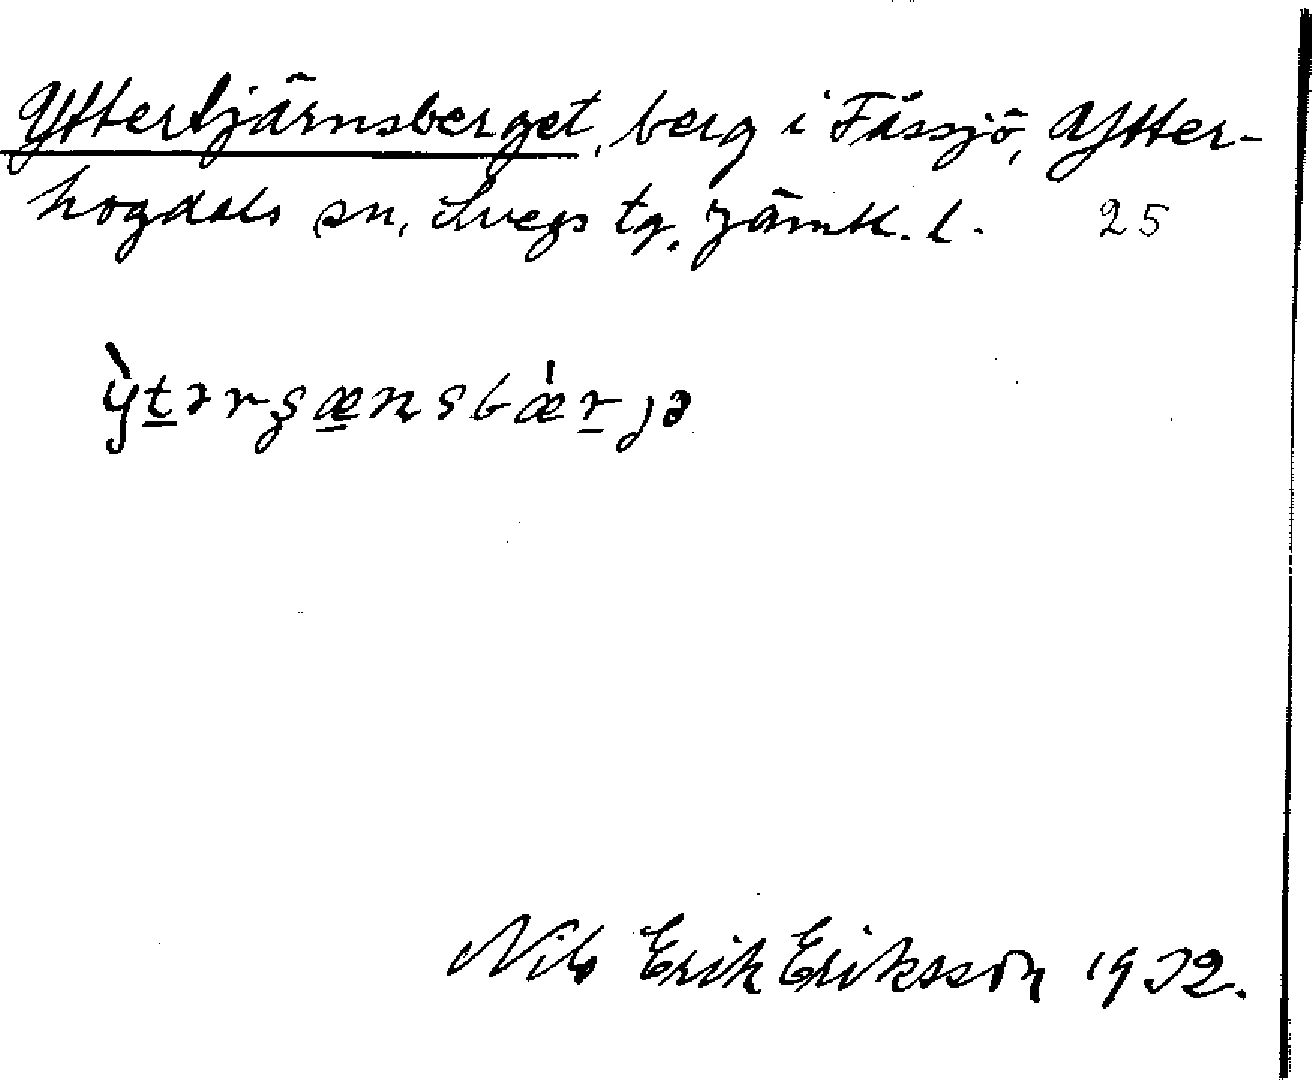 Yttertjärnsberget, berg i Fåssjö, Ytter-
hogdals sn, Svegs tg. Jämtl. l. 25
ỳt̲ərʂæ̲ɳsbǽr̲ɟə
Nils Erik Eriksson 1932.